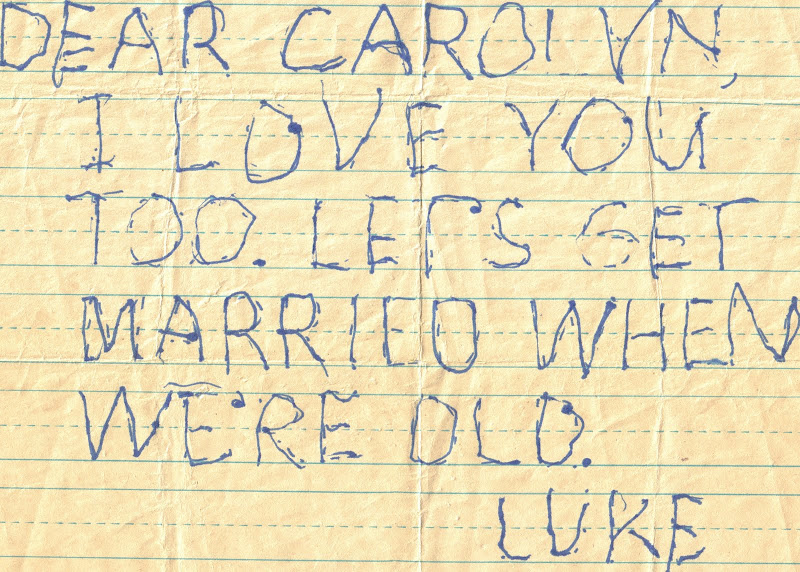 DEAR CAROLYN,
I LOVE YOU
TOO. LET'S GET
MARRIED WHEN
WE'RE OLD.
LUKE